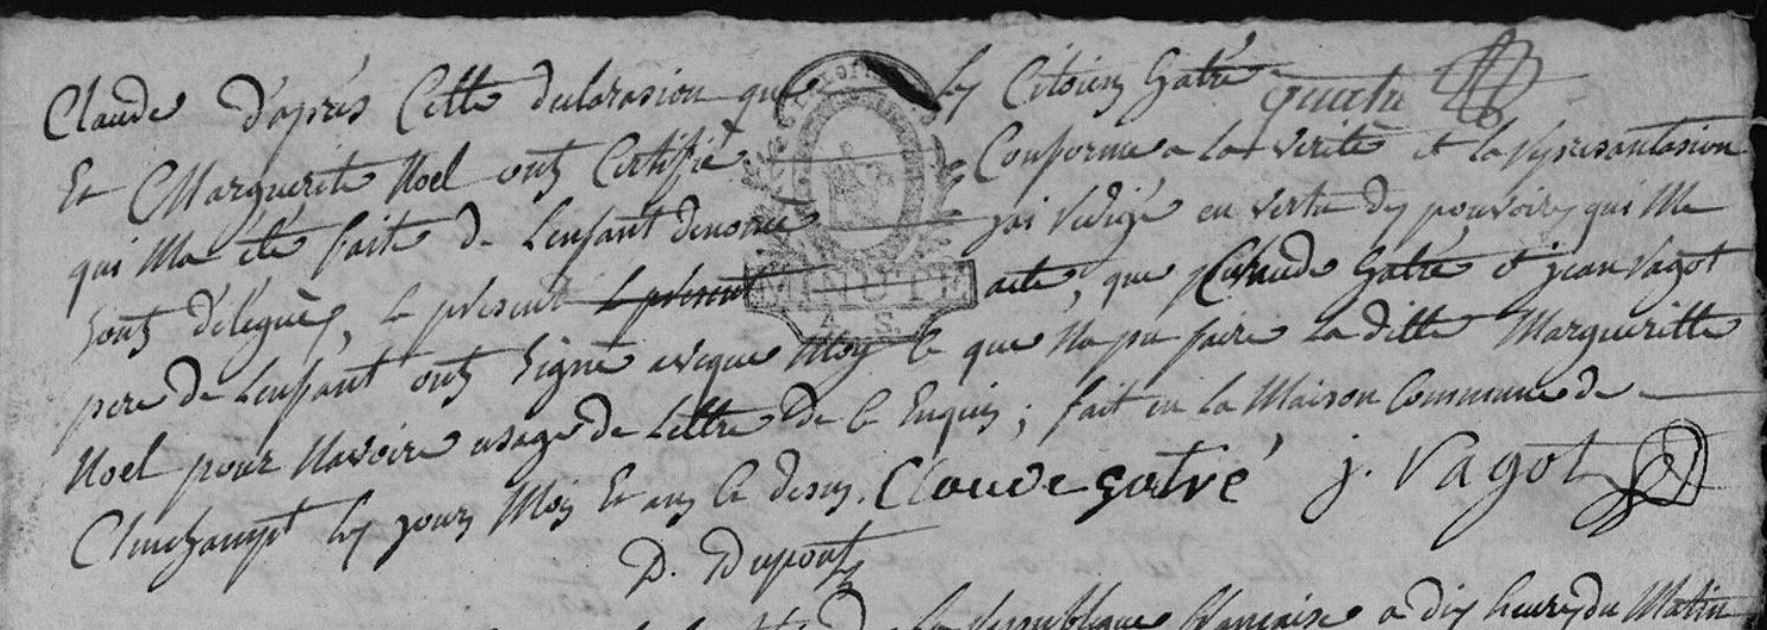 Claude d'après Cette declarasion que les Citoiens Gatré
Et Marguerite Noel onts Certifié Conforme a La verité et la represantasion
qui Ma été faite de L'enfant denomé jai redigé en vertu des pouvoires qui Me
sonts délégués, le present le present acte, que Claude Gatré et jean Vagot
MINUTE
4 S.
pere de Lenfant onts Signé aveque Moy Ce que Na pu faire La ditte Margueritte
Noel pour Navoire usage de Lettre De Ce Enquis ; fait en La Maison Commune de
Clinchampt les jours Mois Et ans Ce desus. Claude gatré j. Vagot
D. Dupont
La Republique francaise a dix heures du Matin